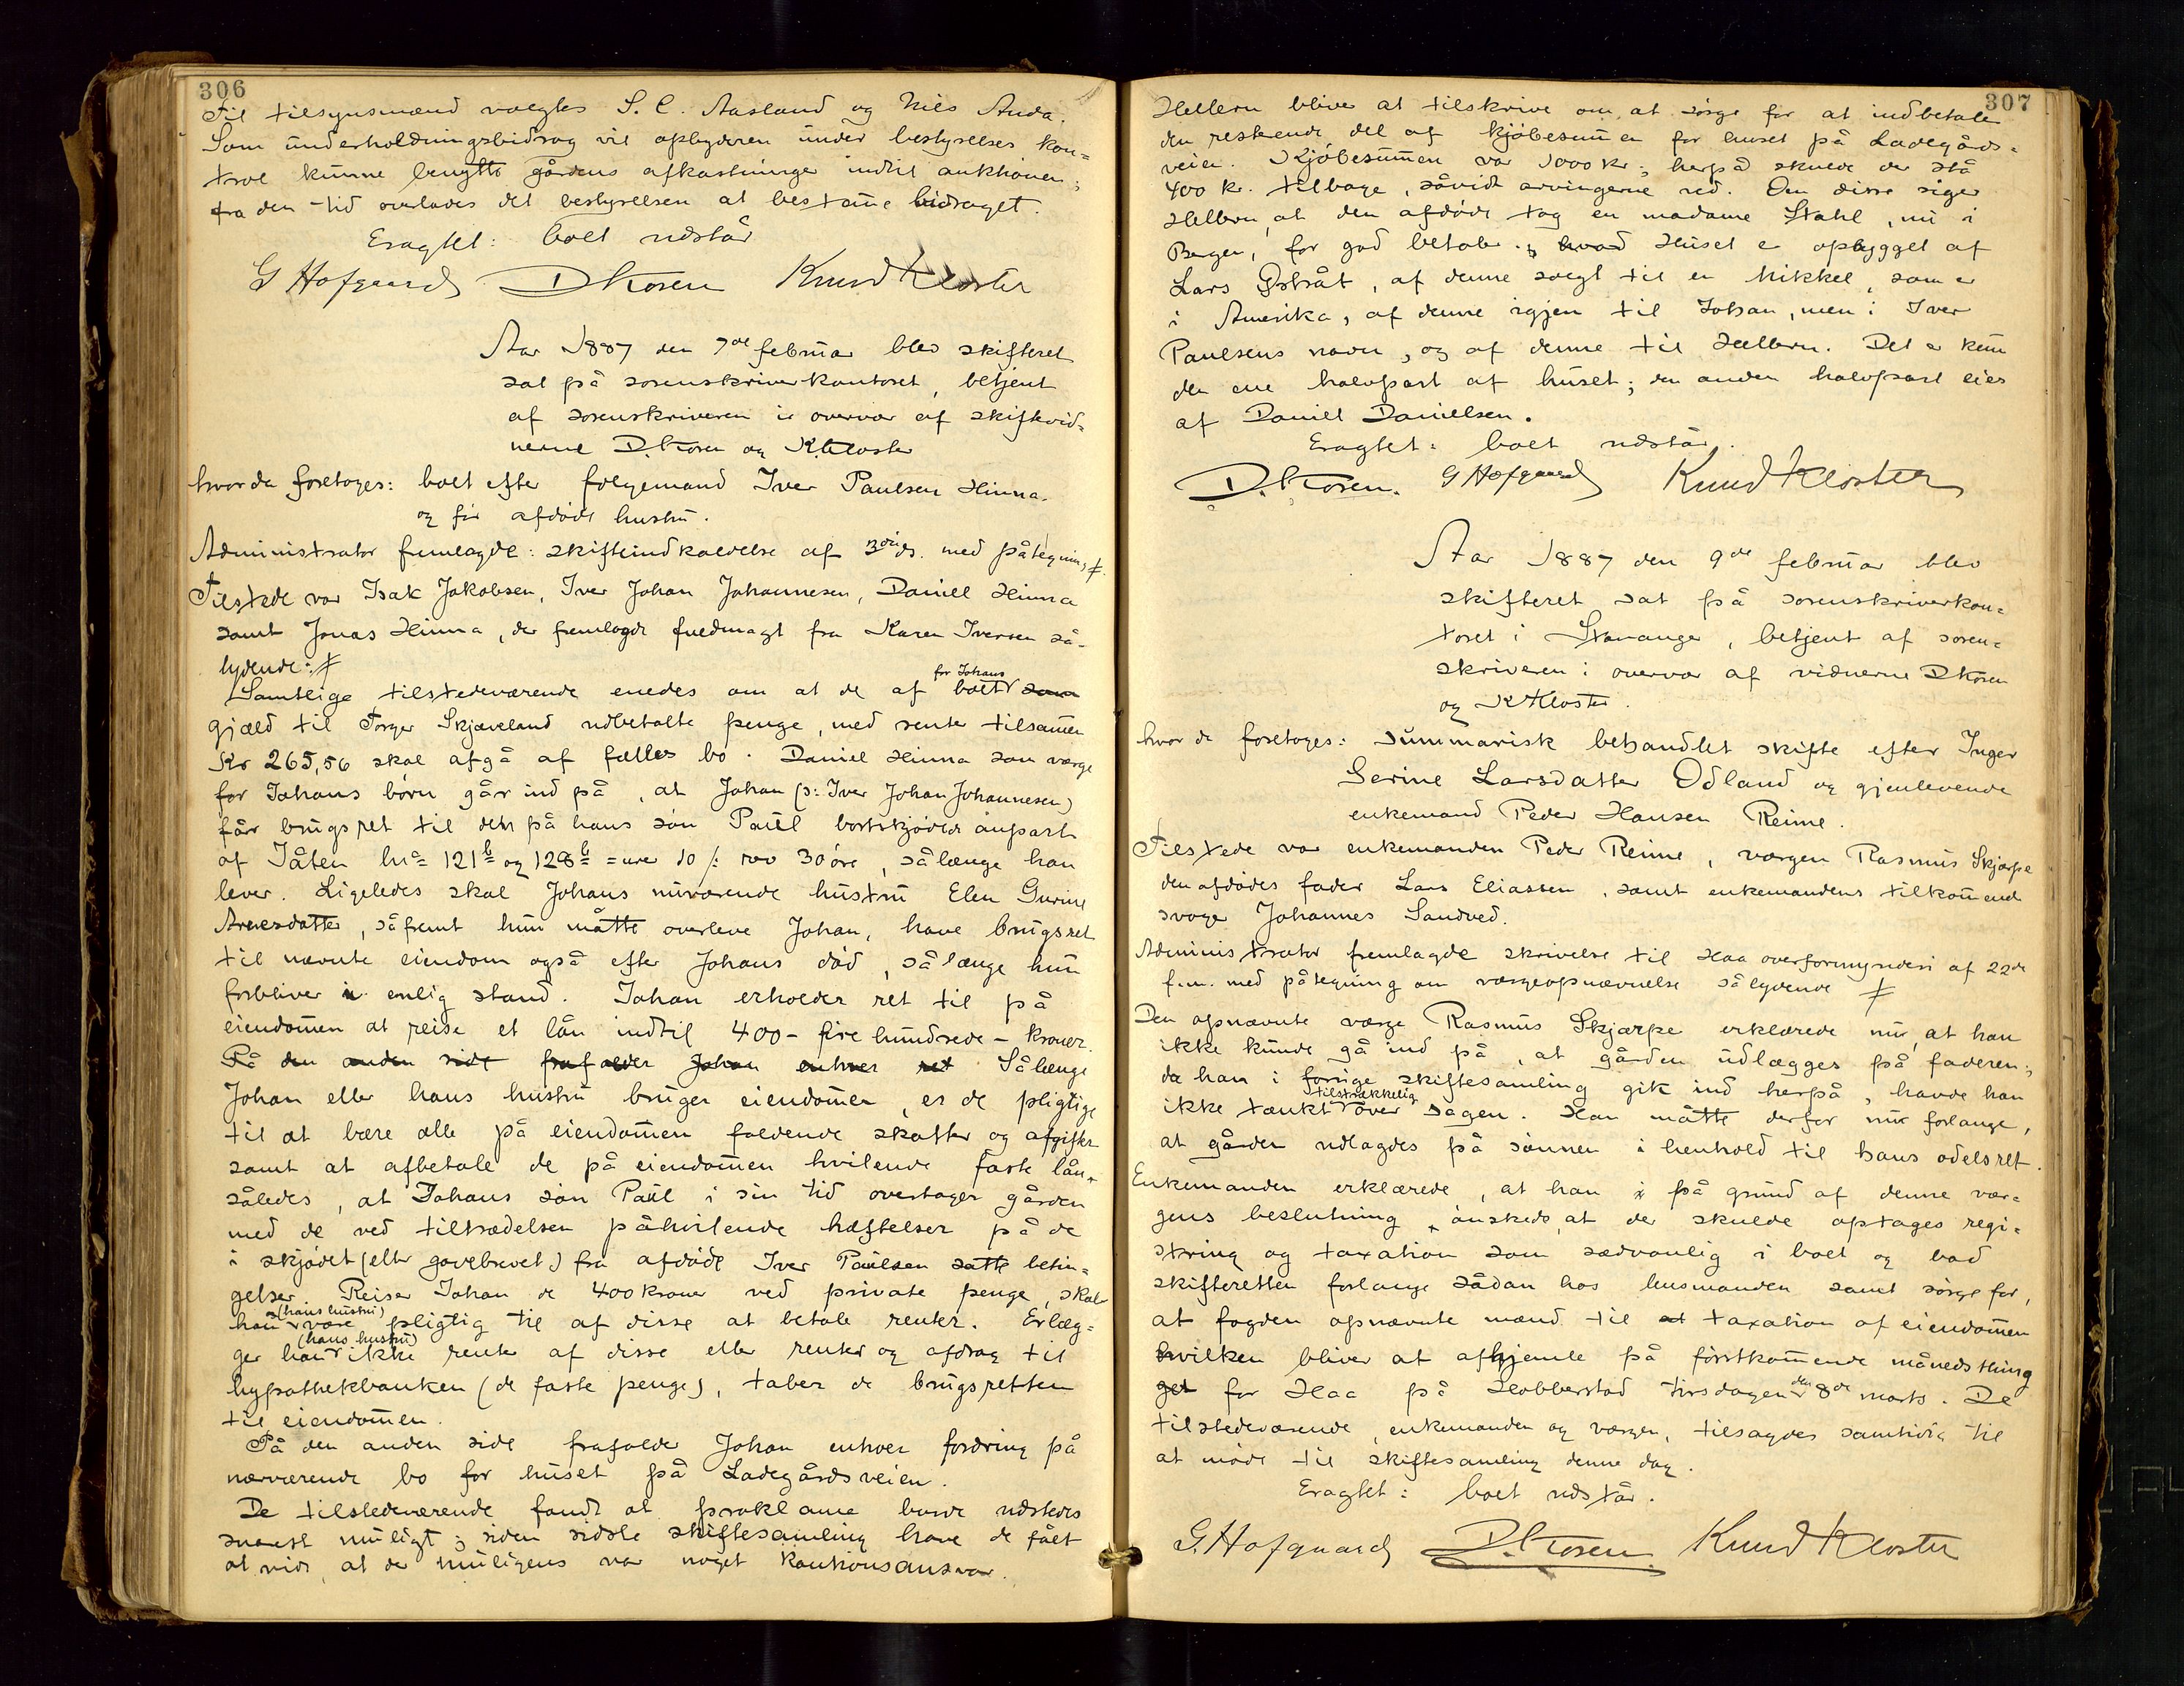 306
Til tilsynsmænd valgtes S. C. Aasland og Nils Anda.
Som underholdningsbidrag vil opbyderen under bestyrelses kon=
trol kunne benytte gårdens afkastninge indtil auktionen;
fra den tid overlades det bestyrelsen at bestame bidraget.
Eragtet: boet udstår
G Hofgaard D Kosen Knud Kloster
Aar 1887 den 7de februar blev skifteret
sat på sorenskriverkontoret, betjent
af sorenskriveren i overvær af skiftevid=
nerne D. Kosen og K. Kloster
hvor da foretoges: boet efter følgemand Iver Paulsen Hinna.
og før afdøde hustru.
Administrator fremlagde: skifteindkaldelse af 3die ds. med påtegning ⌿.
Tilstede var Isak Jakobsen, Iver Johan Johannesen, Daniel Hinna
samt Jonas Hinna, der fremlagde fuldmagt fra Karen Iversen så-
lydende: ⌿
for Johans
Samtlige tilstedeværende enedes om at de af boet som
gjæld til Torger Skjæveland udbetalte penge, med renter tilsamen
Kr 265,56 skal afgå af fælles bo. Daniel Hinna som værge
for Johans børn går ind på, at Johan (ɔ: Iver Johan Johannesen)
får brugsret til den på hans søn Paul bortskjødede anpart
af Jåten 121 b og 128 b 30 øre, sålænge han
lever. Ligeledes skal Johans nuværende hustru Elen Gurine
Arnesdatter, såfremt hun måtte overleve Johan, have brugsret
til nævnte eiendom også efter Johans død, sålænge hun
forbliver i enlig stand. Johan erholder ret til på
eiendomen at reise et lån indtil 400 - fire hundrede - kroner.
På den anden side frafalder Johan enhver ret Sålænge
Johan eller hans hustru bruger eiendomen, er de pligtige
til at bære alle på eiendomen faldende skatter og afgifter
samt at afbetale de på eiendomen hvilende faste lån,
således, at Johans søn Paul i sin tid overtager gården
med de ved tiltrædelsen påhvilende hæftelser på de
i skjødet (eller gavebrevet) fra afdøde Iver Paulsen satte betin=
gelser. Reiser Johan de 400 kroner ved private penge, skal
(hans hustru)
han være pligtig til af disse at betale renter. Erlæg=
(hans hustru)
ger han ikke renter af disse eller renter og afdrag til
hypothekbanken (de faste penge), taber de brugsretten
til eiendomen.
På den anden side frafalder Johan enhver fordring på
nærværende bo for huset på Ladegårdsveien.
De tilstedeværende fandt at proklama burde udstedes
snarest muligt; siden sidste skiftesamling have de fået
at vide, at der muligens var noget kautionsansvar.
307
Hellern bliver at tilskrive om, at sørge for at indbetale
den resterende del af kjøbesumen for huset på Ladegårds=
veien. Kjøbesummen var 1000 kr; herpå skulde der stå
400 kr. tilbage, såvidt arvingerne ved. Om disse siger
Hellern, at den afdøde tog en madame Stahl, nu i
Bergen, for god betaler. hvad Huset er opbygget af
Lars Østråt, af denne solgt til en Mikkel, som er
i Amerika, af denne igjen til Johan, men i Iver
Paulsens navn, og af denne til Hellern. Det er kun
den ene halvpart af huset; den anden halvpart eies
af Daniel Danielsen.
Eragtet: boet udstår.
D. Kosen. G Hofgaard Knud Kloster
Aar 1887 den 9de februar blev
skifteret sat på sorenskriverkon=
toret i Stavanger, betjent af soren=
skriveren i overvær af vidnerne D Kosen
og K Kloster.
hvor da foretoges: summarisk behandlet skifte efter Inger
Serine Larsdatter Odland og gjenlevende
enkemand Peder Hansen Reime.
Tilstede var enkemanden Peder Reime, værgen Rasmus Skjærpe
den afdødes fader Lars Eliassen, samt enkemandens tilkomende
svoger Johannes Sandved.
Administrator fremlagde skrivelse til Haa overformynderi af 22de
f.m. med påtegning om værgeopnævnelse sålydende ⌿
Den opnævnte værge Rasmus Skjærpe erklærede nu, at han
ikke kunde gå ind på, at gården udlægges på faderen;
da han i forrige skiftesamling gik ind herpå, havde han
tilstrækkelig
ikke tænkt over sagen. Han måtte derfor nu forlange,
at gården udlagdes på sønnen i henhold til hans odelsret.
Enkemanden erklærede, at han på grund af denne vær=
gens beslutning ønskede, at der skulde optages regi=
string og taxation som sædvanlig i boet og bad
skifteretten forlange sådan hos lensmanden samt sørge for,
at fogden opnævnte mænd til at taxation af eiendomen
hvilken bliver at afhjemle på førstkomende månedsthing
den
get for Haa på Hobberstad tirsdagen 8de marts. De
tilstedeværende, enkemanden og værgen, tilsagdes samtidig til
at møde til skiftesamling denne dag.
Eragtet: boet udstår.
G. Hofgaard D. Kosen Knud Kloster